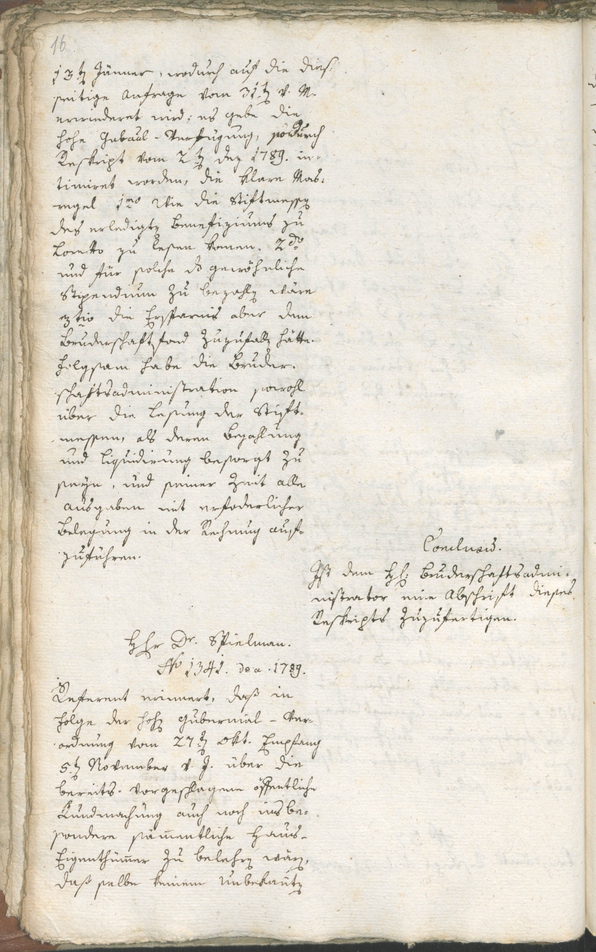 16.
13t Jänner, wodurch auf die dies-
seitige Anfrage vom 31t v. M.
erwiederet wird: es gebe die
hohe Verfügung, wodurch
Reskript vom 2t Dez 1789. in-
timiret worden, die klare Mas-
regel 1mo wie die Stiftmessen
des erledigten Benefiziums zu
Loretto zu lesen kommen. 2do
und für solche das gewöhnliche
Stipendium zu bezahlen wäre
3tio die Ersparnis aber dem
Bruderschaftsfond zuzufallen hätte.
Folgsam habe die Bruder-
schaftsadministration sowohl
über die Lesung der Stift-
messen, als deren Bezahlung
und Liquidirung besorgt zu
seyn, und seiner Zeit alle
Ausgaben mit erforderlicher
Belegung in der Rechnung auf-
zuführen.
Conclusum.
Ist dem Hh. Bruderschaftsadmi-
nistrator eine Abschrift dieses
Reskripts zuzufertigen.
Hhr Dr. Spielman.
No 1341. de a. 1789.
Referent erinnert, daß in
Folge der hohen Gubernial-Ver-
ordnung vom 27t Okt. Empfang
5t November v. J. über die
bereits vorgeschlagene öffentliche
Kundmachung auch noch insbe-
sondere sämmentliche Haus-
Eigenthümer zu belehren wären,
daß selbe keinem Unbekannten